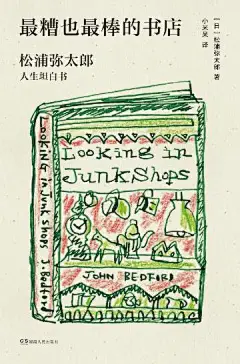 最糟也最棒的书店
松浦弥太郎
人生坦白书
［日］松浦弥太郎 著
小米呆 译
LOOKING in JUNK Shops J. Bedford
Looking in
JUNK Shops
JOHN BEDFORD
湖南人民出版社